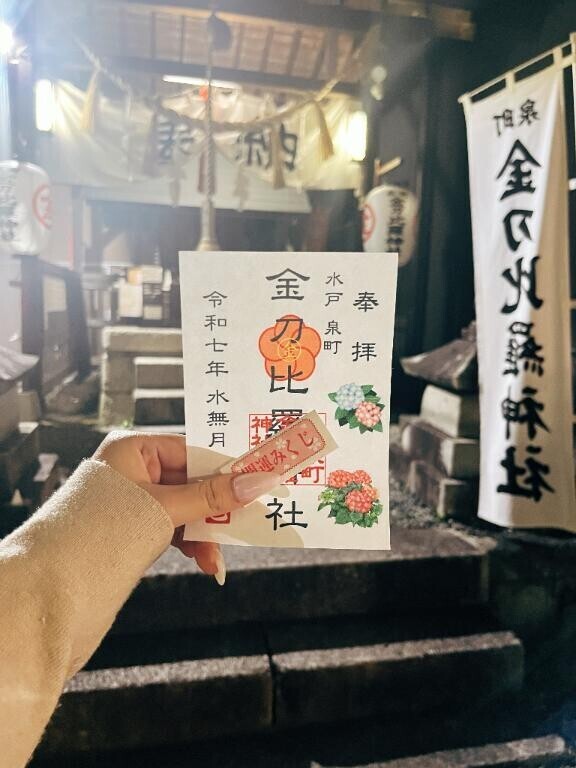 奉拝
水戸 泉町
金刀比羅
社
令和七年 水無月
金
開運みくじ
泉町
金刀比羅神社